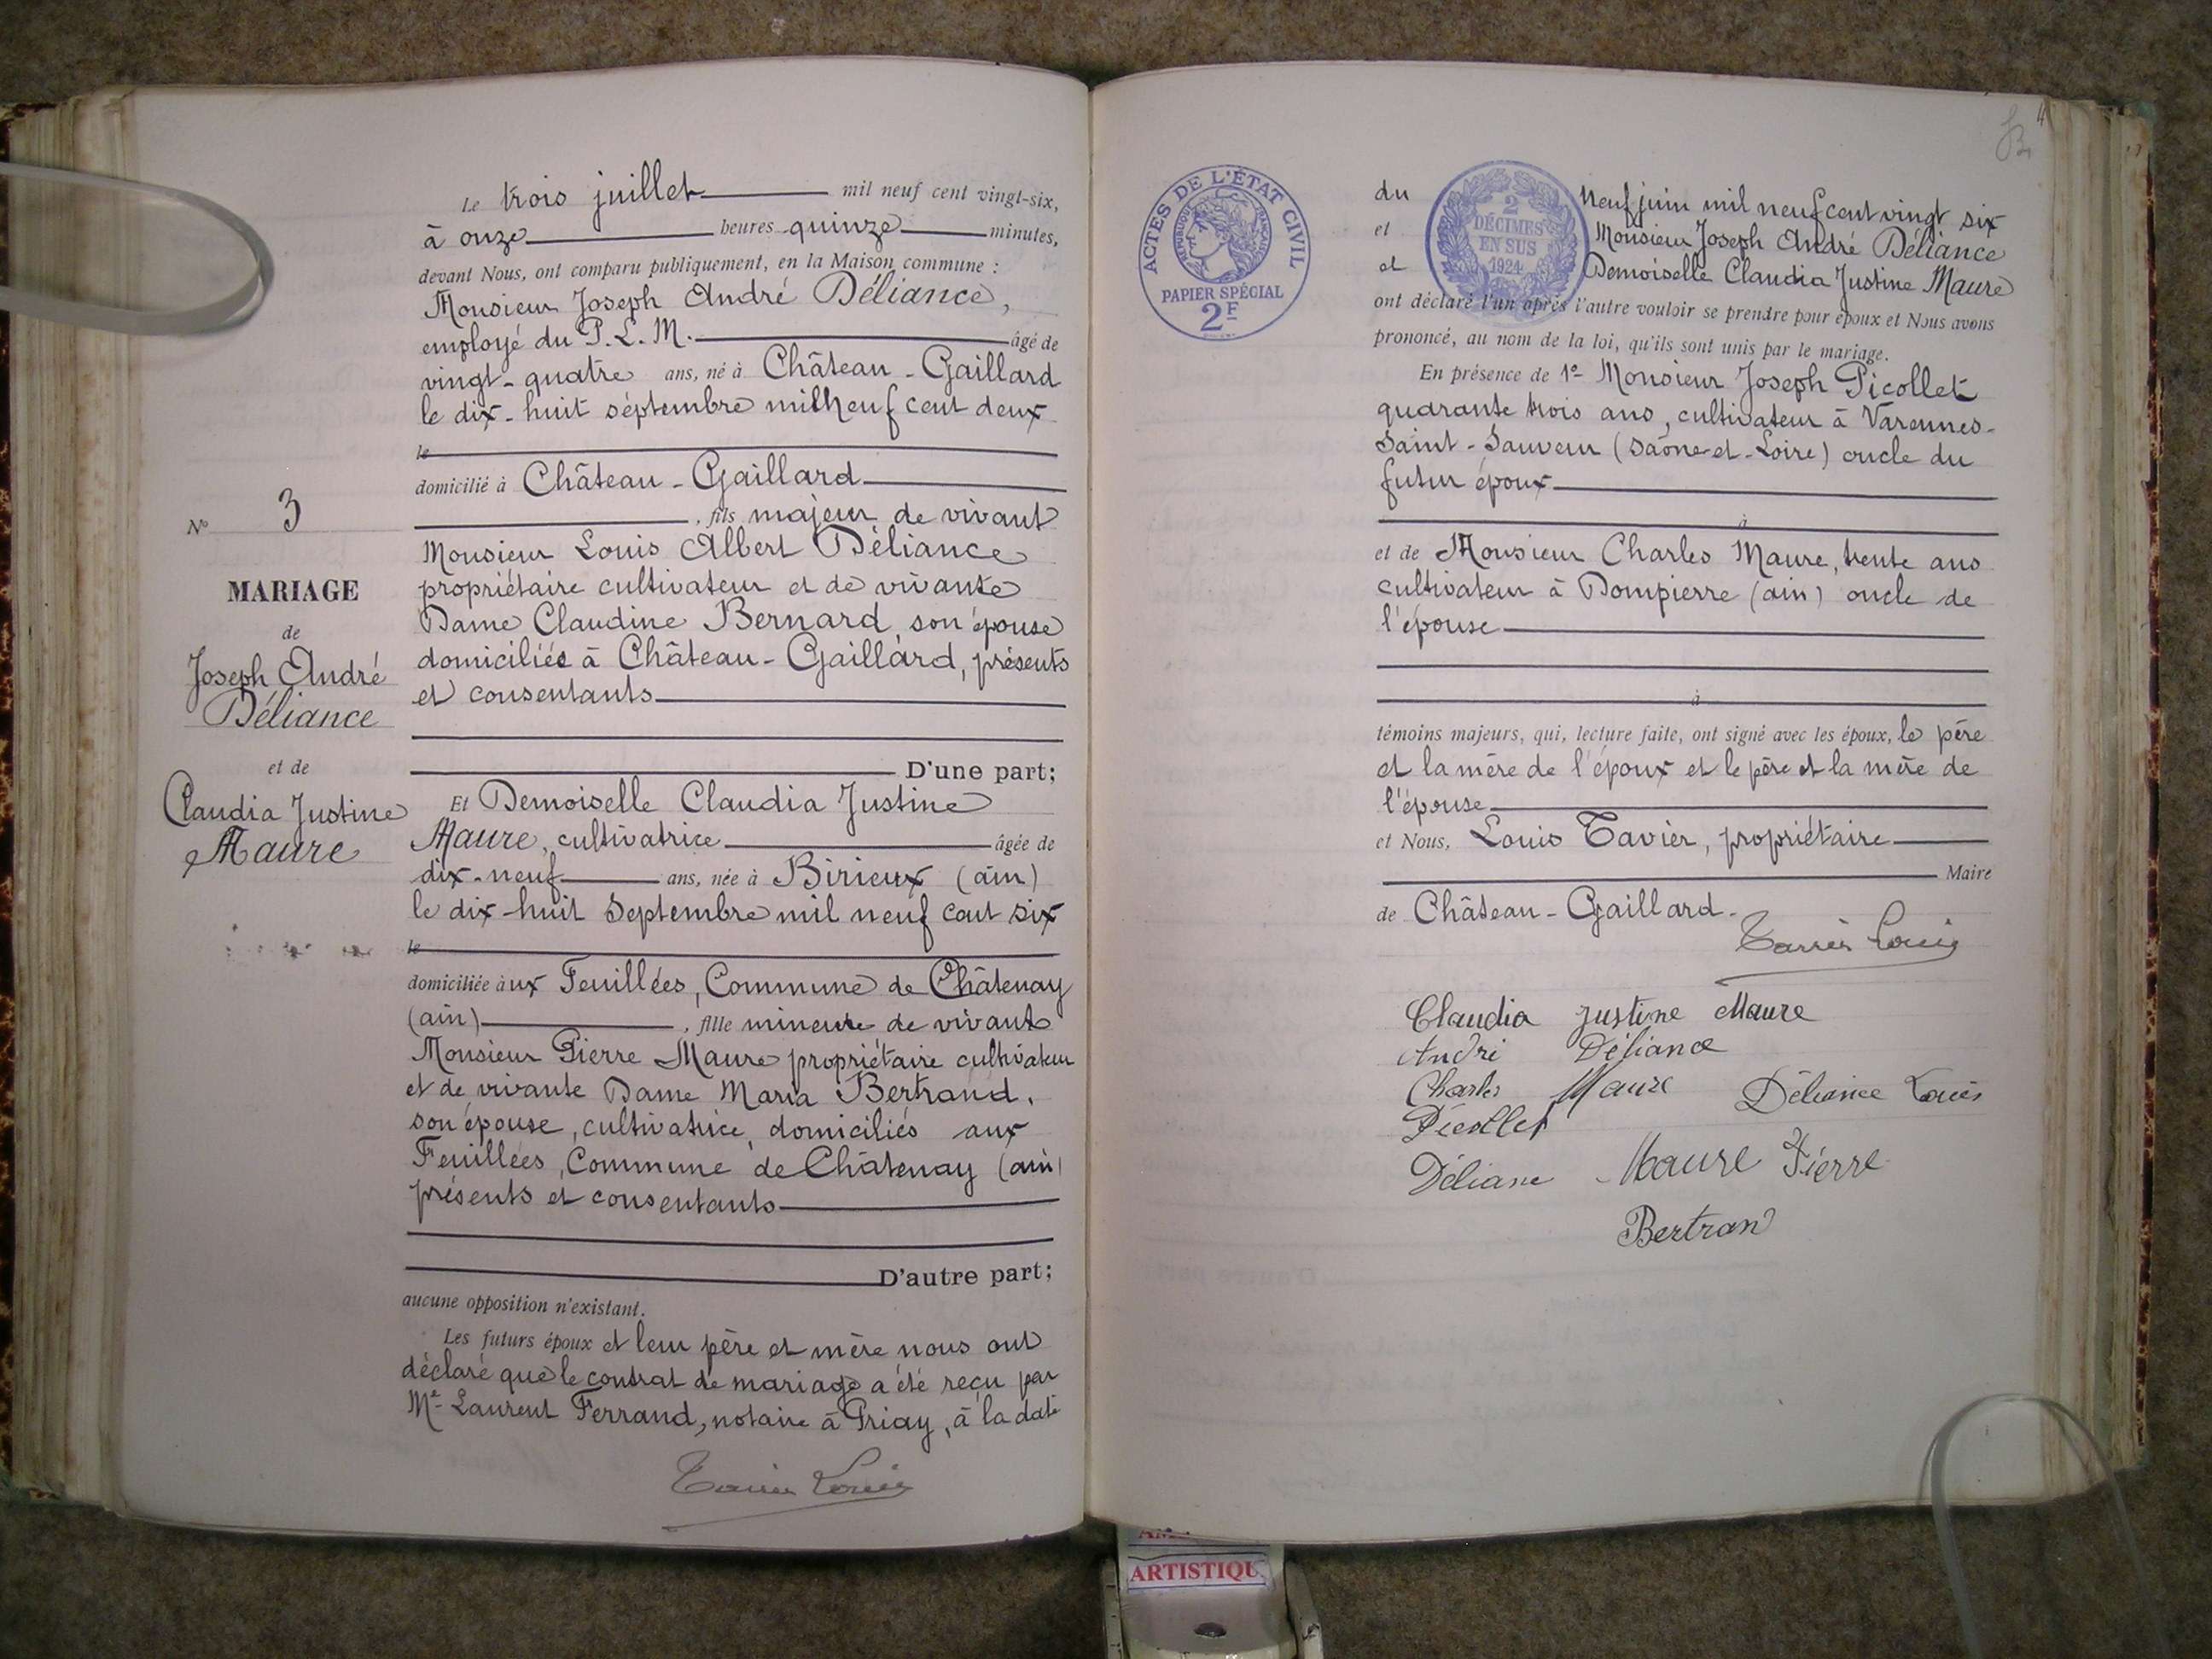 N° 3
MARIAGE
de
Joseph André
Déliance
et de
Claudia Justine
Maure
Le trois juillet mil neuf cent vingt-six,
à onze heures quinze minutes,
devant Nous, ont comparu publiquement, en la Maison commune :
Monsieur Joseph André Déliance,
employé du P.L.M. âgé de
vingt-quatre ans, né à Château-Gaillard
le dix-huit séptembre mil neuf cent deux
le
domicilié à Château-Gaillard
, fils majeur de vivant
Monsieur Louis Albert Déliance
propriétaire cultivateur et de vivante
Dame Claudine Bernard, son épouse
domiciliés à Château-Gaillard, présents
et consentants
D'une part;
Et Demoiselle Claudia Justine
Maure, cultivatrice âgée de
dix-neuf ans, née à Birieux (ain)
le dix-huit Septembre mil neuf cent six
le
domiciliée aux Feuillées, Commune de Châtenay
(ain) , fille mineure de vivant
Monsieur Pierre Maure propriétaire cultivateur
et de vivante Dame Maria Bertrand,
son épouse, cultivatrice, domiciliés aux
Feuillées, Commune de Châtenay (ain)
présents et consentants
D'autre part;
aucune opposition n'existant.
Les futurs époux et leur père et mère nous ont
déclaré que le contrat de mariage a été reçu par
Me Laurent Ferrand, notaire à Priay, à la date
Tavier Louis
4
ACTES DE L'ÉTAT CIVIL
RÉPUBLIQUE FRANÇAISE
PAPIER SPÉCIAL
2F
2
DÉCIMES
EN SUS
1924
du neuf juin mil neuf cent vingt six
et Monsieur Joseph André Déliance
et Demoiselle Claudia Justine Maure
ont déclaré l'un après l'autre vouloir se prendre pour époux et Nous avons
prononcé, au nom de la loi, qu'ils sont unis par le mariage.
En présence de 1° Monsieur Joseph Picollet
quarante trois ans, cultivateur à Varennes-
Saint-Sauveur (Saône-et-Loire) oncle du
futur époux
à
et de Monsieur Charles Maure, trente ans
cultivateur à Dompierre (ain) oncle de
l'épouse
à
témoins majeurs, qui, lecture faite, ont signé avec les époux, le père
et la mère de l'époux et le père et la mère de
l'épouse
et Nous, Louis Tavier, propriétaire
Maire
de Château-Gaillard.
Tavier Louis
Claudia Justine Maure
André Déliance
Charles Maure Déliance Louis
Picollet
Déliane Maure Pierre
Bertran
ARTISTIQU